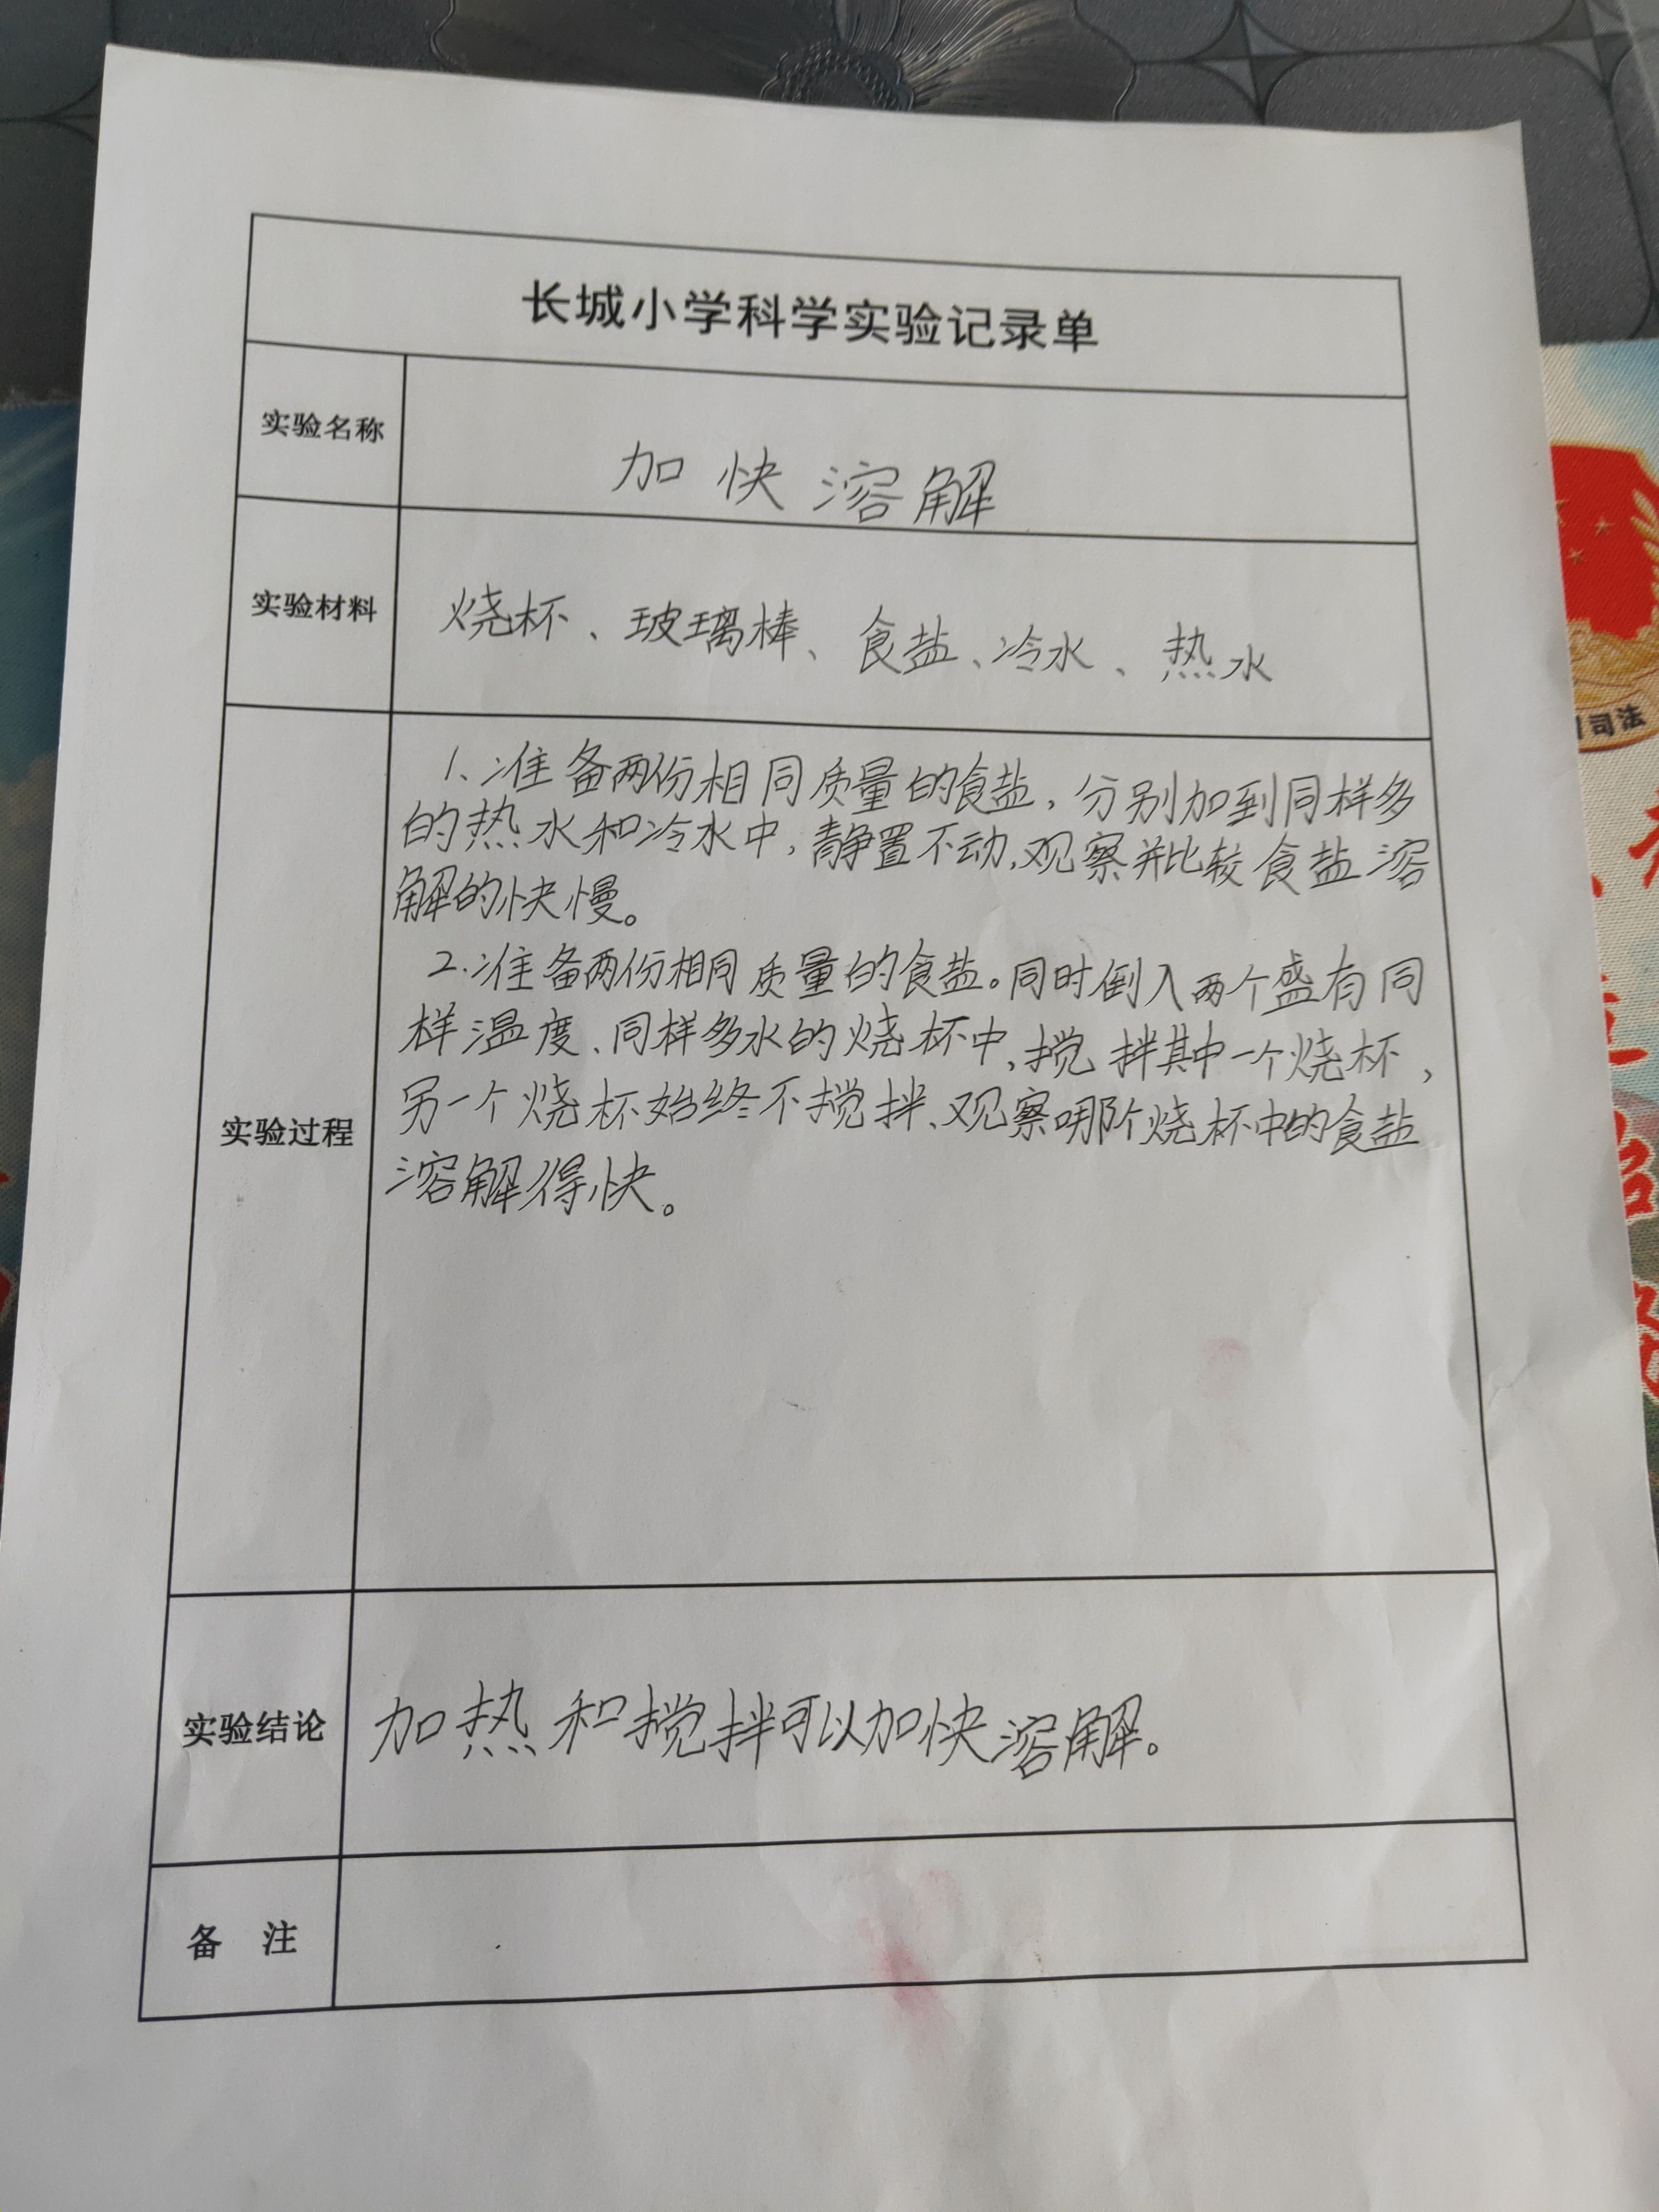 长城小学科学实验记录单
实验名称
加快溶解
实验材料
烧杯、玻璃棒、食盐、冷水、热水
实验过程
1、准备两份相同质量的食盐,分别加到同样多
的热水和冷水中,静置不动,观察并比较食盐溶
解的快慢。
2.准备两份相同质量的食盐。同时倒入两个盛有同
样温度、同样多水的烧杯中,搅拌其中一个烧杯,
另一个烧杯始终不搅拌、观察哪个烧杯中的食盐
溶解得快。
实验结论
加热和搅拌可以加快溶解。
备 注
司法